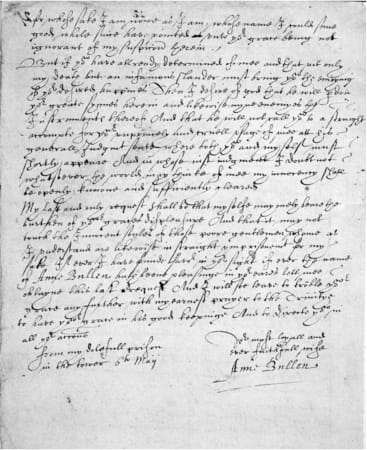 whose sake I am nowe as I am, whose name I could some
good while since have pointed unto yor grace being not
ignorant of my suspition therein.
But if yow have already determined of mee and that not only
my death but an infamous slander must bring yow the enjoying
of yor desired happines Then I desire of god that he will pardon
yor great synnes herein and likewise myne enemyes the
Instruments thereof And that he will not call yow to a straight
accounte for yor unprincely and cruell usage of mee att his
generall Judgment seate where both yow and my selfe must
shortly appeare And in whose just judgment I doubt not
whatsoever the world may thinke of mee my innocency shall
be openly knowne and sufficiently cleared
My last and only request shall be that my selfe may only beare the
burthen of yor graces displeasure And that it may not
touch the Innocent soules of those poore gentlemen whome as
I understand are likewise in straight imprisonment for my
sake If ever I have founde favor in yor sight if ever the name
of Anne Bullen hath bene pleasinge in yor eares lett mee
obtayne this last request And I will soe leave to troble yor
grace any further with my earnest prayer to the Trinitye
to have yor grace in his good keepinge And to directe yow in
all yor actions
From my dolefull prison
in the tower 6th May
Yor most loyall and
ever faithfull wife
Anne Bullen